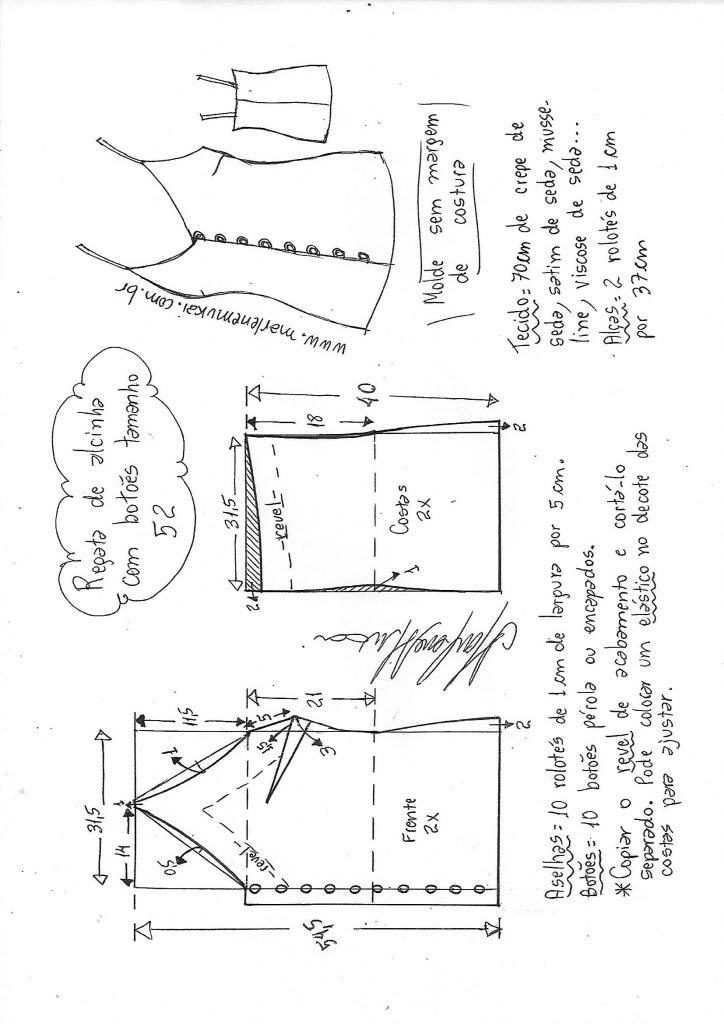 Regata de alcinha
com botões tamanho
52
www.marlenemukai.com.br
Molde sem margem
de costura
Tecido = 70cm de crepe de
seda, satim de seda, musse-
line, viscose de seda...
Alças = 2 rolotês de 1 cm
por 37cm
54,5
14
31,5
1
11,5
0,5
1
5
1,5
3
21
2
revel
Frente
2X
2
31,5
18
40
revel
Costas
2X
1
2
Aselhas = 10 rolotês de 1 cm de largura por 5 cm.
Botões = 10 botões pérola ou encapados.
*Copiar o revel de acabamento e cortá-lo
separado. Pode colocar um elástico no decote das
costas para ajustar.